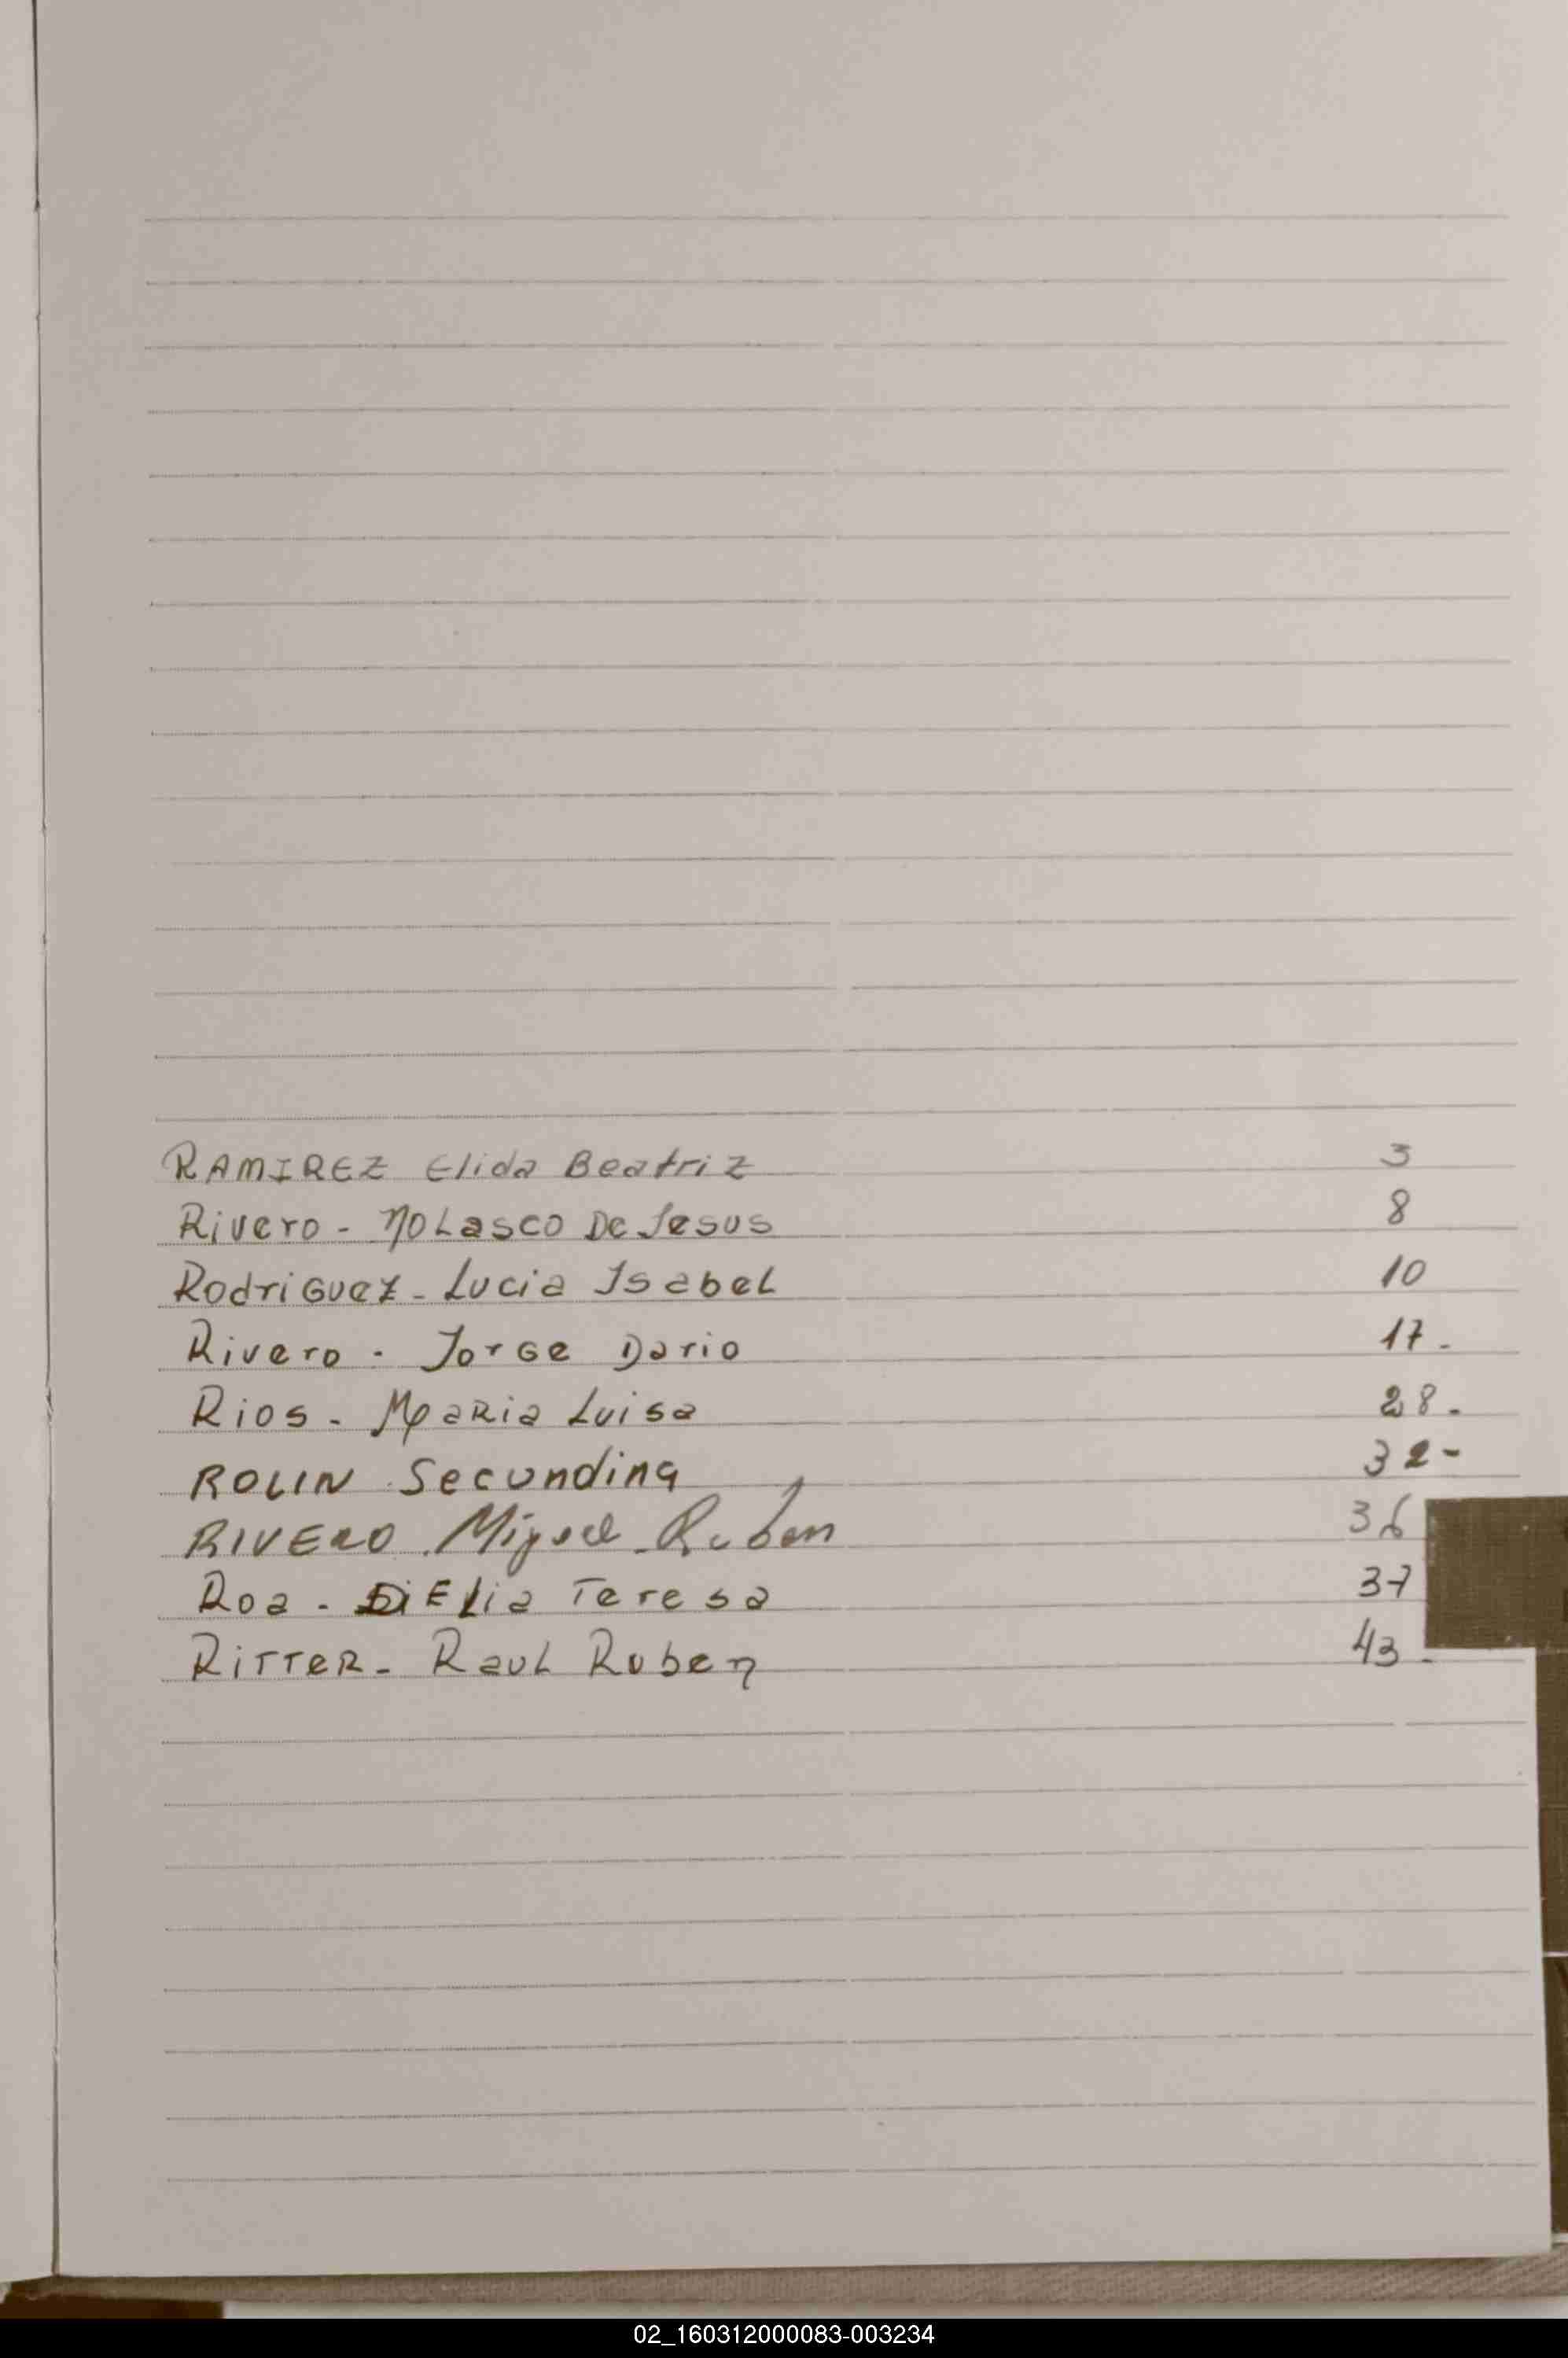 RAMIREZ Elida Beatriz 3
Rivero - NOLasco De Jesus 8
Rodriguez - Lucia Isabel 10
Rivero - Jorge Dario 17.
Rios - Maria Luisa 28.
ROLIN Secundina 32-
RIVERO Miguel Ruben 36
Roa - Elia Teresa 37
RiTTeR - Raul Ruben 43.
02_160312000083-003234